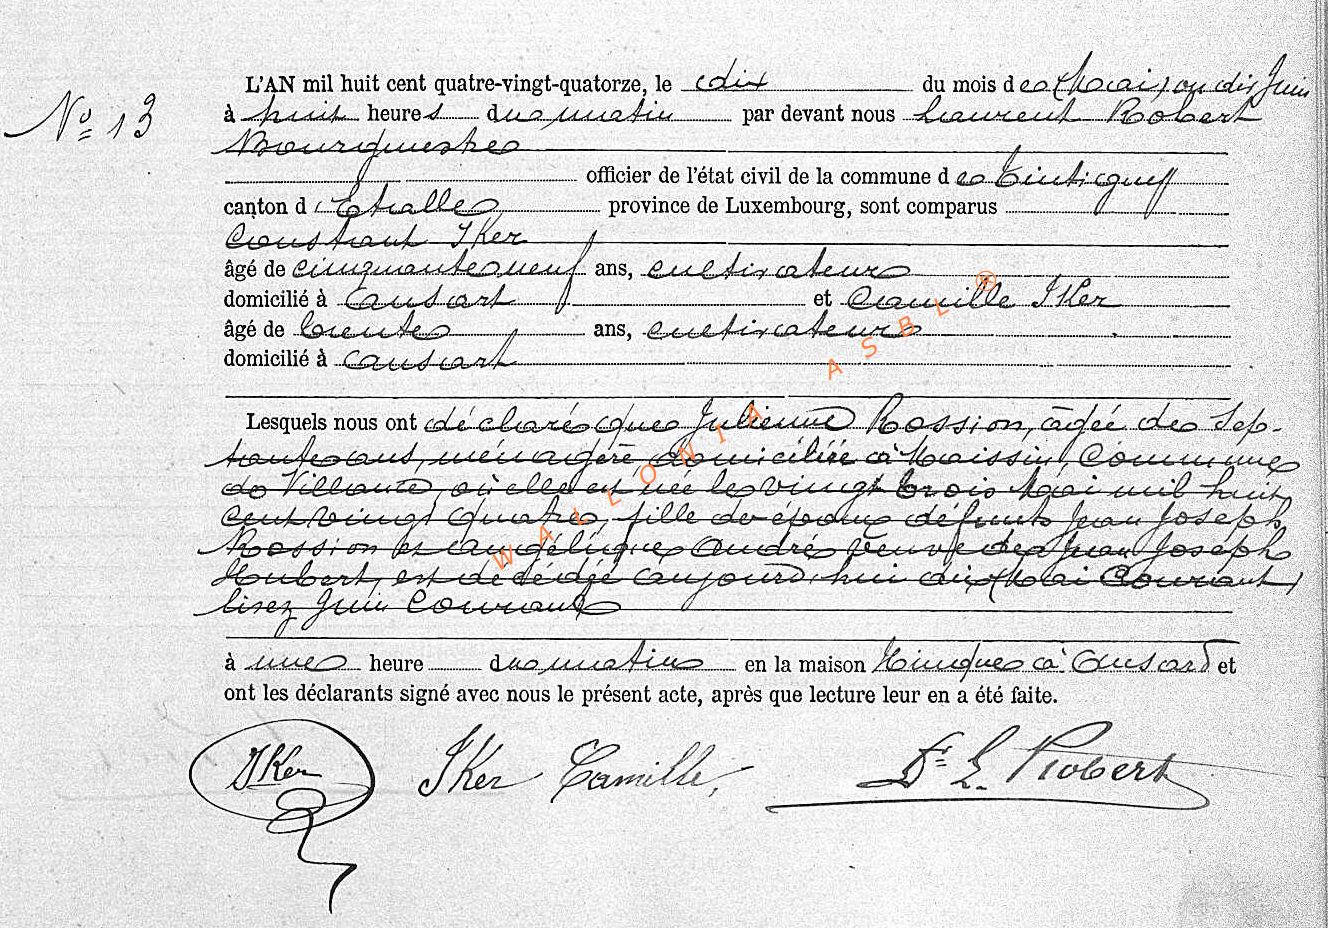 N° 13
L'AN mil huit cent quatre-vingt-quatorze, le dix du mois de (Mai) ou dix Juin
à huit heures du matin par devant nous Laurent Robert
Bourgmestre
officier de l'état civil de la commune de Tintigny
canton d'Etalle province de Luxembourg, sont comparus
Constant IKer
âgé de cinquante neuf ans, cultivateur
domicilié à Ansart et Camille IKer
âgé de trente ans, cultivateur
domicilié à Ansart
Lesquels nous ont déclaré que Julienne Rossion, âgée de Sep-
tante ans, ménagère, domiciliée à Maissin, Commune
de Villance, où elle est née le vingt trois Mai mil huit
cent vingt quatre, fille des époux défunts Jean Joseph
Rossion et Angélique André veuve de Jean Joseph
Hubert, est décédée aujourd'hui dix (Mai Courant)
lisez Juin Courant
à une heure du matin en la maison Hinque à Ansart et
ont les déclarants signé avec nous le présent acte, après que lecture leur en a été faite.
IKer IKer Camille, Dr L. Robert
WALLONIA ASBL ®